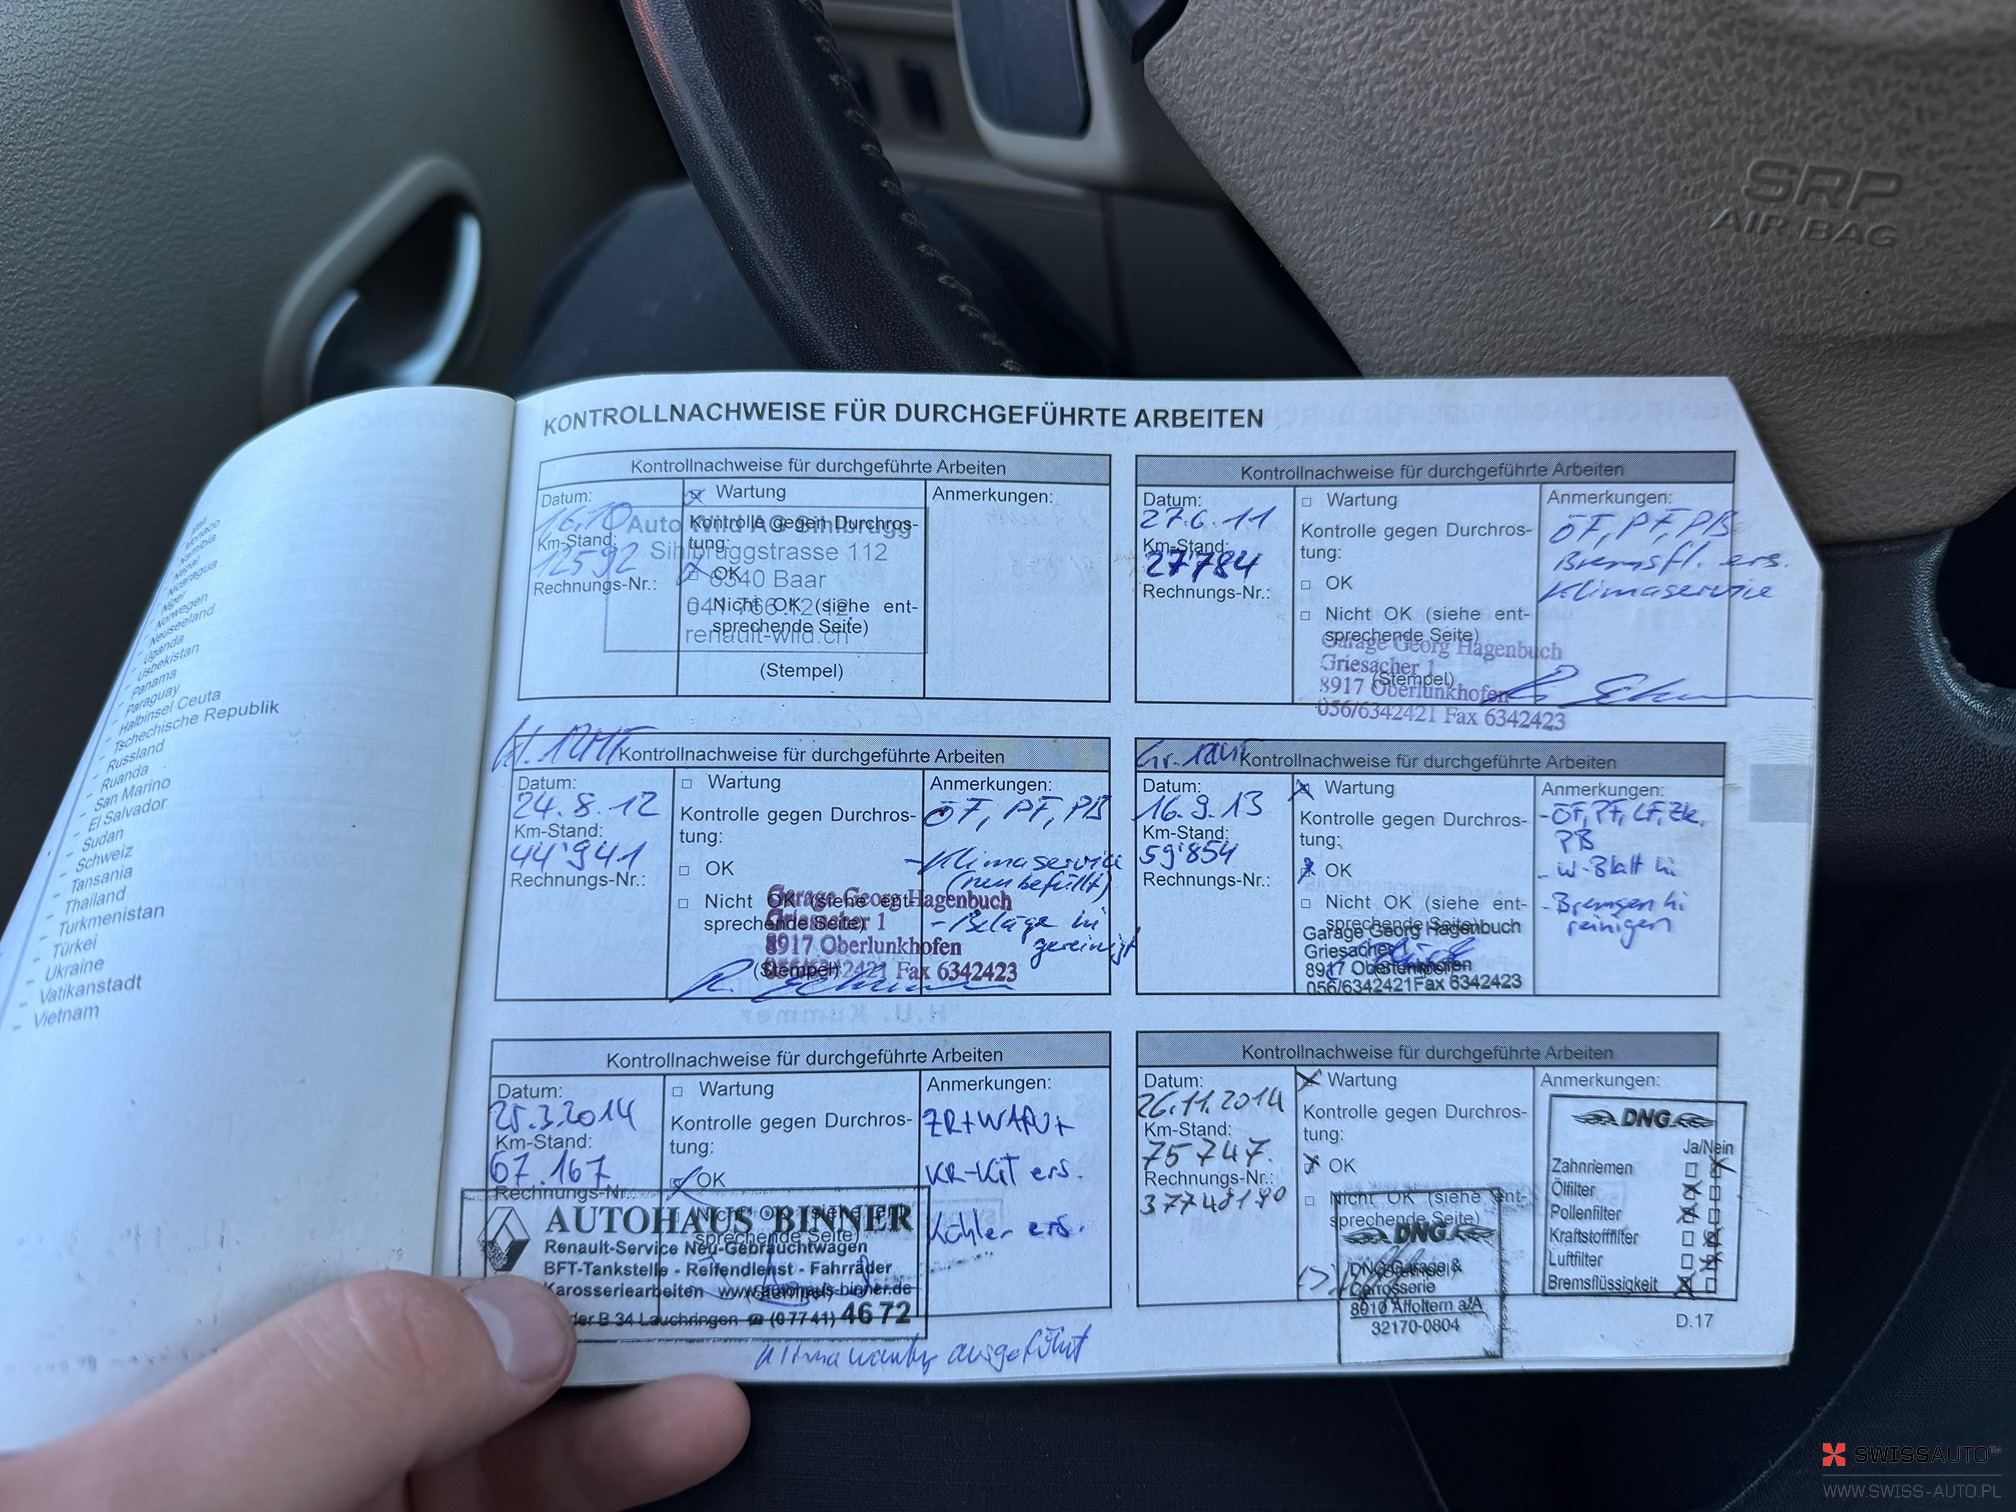 SRP
AIR BAG
- Namibia
- Nepal
- Nicaragua
- Niger
- Norwegen
- Neuseeland
- Uganda
- Usbekistan
- Panama
- Paraguay
- Halbinsel Ceuta
- Tschechische Republik
- Russland
- Ruanda
- San Marino
- El Salvador
- Sudan
- Schweiz
- Tansania
- Thailand
- Turkmenistan
- Türkei
- Ukraine
- Vatikanstadt
- Vietnam
KONTROLLNACHWEISE FÜR DURCHGEFÜHRTE ARBEITEN
Kontrollnachweise für durchgeführte Arbeiten
Datum:
Km-Stand:
12592
Rechnungs-Nr.:
Wartung
Kontrolle gegen Durchros-
tung:
OK
Nicht OK (siehe ent-
sprechende Seite)
(Stempel)
Auto Wild AG Sihlbrugg
Sihlbruggstrasse 112
6340 Baar
renault-wild.ch
Anmerkungen:
Kontrollnachweise für durchgeführte Arbeiten
Datum:
27.6.11
Km-Stand:
27'784
Rechnungs-Nr.:
Wartung
Kontrolle gegen Durchros-
tung:
OK
Nicht OK (siehe ent-
sprechende Seite)
(Stempel)
Garage Georg Hagenbuch
Griesacher 1
8917 Oberlunkhofen
056/6342421 Fax 6342423
Anmerkungen:
ÖF, PF, PB
Bremsfl. ers.
Klimaservice
Kontrollnachweise für durchgeführte Arbeiten
Datum:
24.8.12
Km-Stand:
44'941
Rechnungs-Nr.:
Wartung
Kontrolle gegen Durchros-
tung:
OK
Nicht OK (siehe ent-
sprechende Seite)
(Stempel)
Garage Georg Hagenbuch
Griesacher 1
8917 Oberlunkhofen
056/6342421 Fax 6342423
Anmerkungen:
ÖF, PF, PB
- Klimaservice
(neu befüllt)
- Beläge hi
gereinigt
Kontrollnachweise für durchgeführte Arbeiten
Datum:
16.9.13
Km-Stand:
59'854
Rechnungs-Nr.:
Wartung
Kontrolle gegen Durchros-
tung:
OK
Nicht OK (siehe ent-
sprechende Seite)
Garage Georg Hagenbuch
Griesacher 1
8917 Oberlunkhofen
056/6342421Fax 6342423
Anmerkungen:
- ÖF, PF, LF, Zk,
PB
- W-Blatt hi
- Bremsen hi
reinigen
Kontrollnachweise für durchgeführte Arbeiten
Datum:
25.3.2014
Km-Stand:
67.167
Rechnungs-Nr.:
Wartung
Kontrolle gegen Durchros-
tung:
OK
Nicht OK (siehe ent-
sprechende Seite)
(Stempel)
AUTOHAUS BINNER
Renault-Service Neu-Gebrauchtwagen
BFT-Tankstelle - Reifendienst - Fahrräder
Karosseriearbeiten www.autohaus-binner.de
der B 34 Lauchringen ☎ (0 77 41) 46 72
Anmerkungen:
ZR+WAPU+
KR-KIT ers.
Kühler ers.
Klimawartung ausgeführt
Kontrollnachweise für durchgeführte Arbeiten
Datum:
26.11.2014
Km-Stand:
75747.
Rechnungs-Nr.:
Wartung
Kontrolle gegen Durchros-
tung:
OK
Nicht OK (siehe ent-
sprechende Seite)
DNG
DNG Garage &
Carrosserie
8910 Affoltern a/A
32170-0804
Anmerkungen:
DNG
Ja/Nein
Zahnriemen
Ölfilter
Pollenfilter
Kraftstofffilter
Luftfilter
Bremsflüssigkeit
D.17
SWISSAUTO™
WWW.SWISS-AUTO.PL